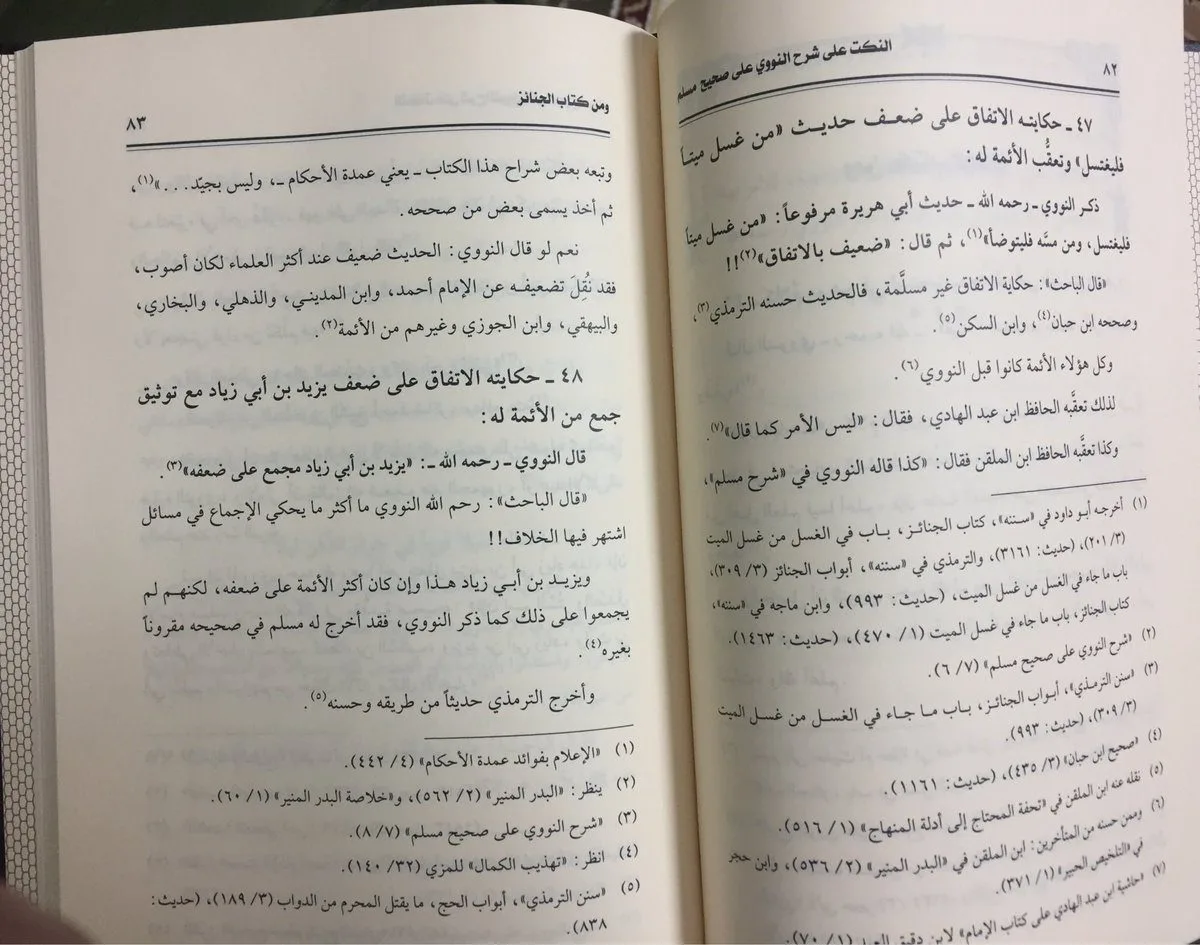 النكت على شرح النووي على صحيح مسلم
٨٢
٤٧ ـ حكايته الاتفاق على ضعف حديث «من غسل ميتاً
فليغتسل» وتعقُّب الأئمة له:
ذكر النووي ـ رحمه الله ـ حديث أبي هريرة مرفوعاً: «من غسل ميتاً
فليغتسل، ومن مسَّه فليتوضأ»(١)، ثم قال: «ضعيف بالاتفاق»(٢)!!
«قال الباحث»: حكاية الاتفاق غير مسلَّمة، فالحديث حسنه الترمذي(٣)،
وصححه ابن حبان(٤)، وابن السكن(٥).
وكل هؤلاء الأئمة كانوا قبل النووي(٦).
لذلك تعقَّبه الحافظ ابن عبد الهادي، فقال: «ليس الأمر كما قال»(٧).
وكذا تعقبه الحافظ ابن الملقن فقال: «كذا قاله النووي في «شرح مسلم»،
(١) أخرجه أبو داود في «سننه»، كتاب الجنائز، باب في الغسل من غسل الميت
(٣/ ٢٠١)، (حديث: ٣١٦١)، والترمذي في «سننه»، أبواب الجنائز (٣/ ٣٠٩)،
باب ما جاء في الغسل من غسل الميت، (حديث: ٩٩٣)، وابن ماجه في «سننه»،
كتاب الجنائز، باب ما جاء في غسل الميت (١/ ٤٧٠)، (حديث: ١٤٦٣).
(٢) «شرح النووي على صحيح مسلم» (٧/ ٦).
(٣) «سنن الترمذي»، أبواب الجنائز، باب ما جاء في الغسل من غسل الميت
(٣/ ٣٠٩)، (حديث: ٩٩٣).
(٤) «صحيح ابن حبان» (٣/ ٤٣٥)، (حديث: ١١٦١).
(٥) نقله عنه ابن الملقن في «تحفة المحتاج إلى أدلة المنهاج» (١/ ٥١٦).
(٦) وممن حسنه من المتأخرين: ابن الملقن في «البدر المنير» (٢/ ٥٣٦)، وابن حجر
في «التلخيص الحبير» (١/ ٣٧١).
(٧) «حاشية ابن عبد الهادي على كتاب الإمام» لابن دقيق العيد (١/ ٧٠).
ومن كتاب الجنائز
٨٣
وتبعه بعض شراح هذا الكتاب ـ يعني عمدة الأحكام ـ، وليس بجيّد...»(١)،
ثم أخذ يسمى بعض من صححه.
نعم لو قال النووي: الحديث ضعيف عند أكثر العلماء لكان أصوب،
فقد نُقِلَ تضعيفه عن الإمام أحمد، وابن المديني، والذهلي، والبخاري،
والبيهقي، وابن الجوزي وغيرهم من الأئمة(٢).
٤٨ ـ حكايته الاتفاق على ضعف يزيد بن أبي زياد مع توثيق
جمع من الأئمة له:
قال النووي ـ رحمه الله ـ: «يزيد بن أبي زياد مجمع على ضعفه»(٣).
«قال الباحث»: رحم الله النووي ما أكثر ما يحكي الإجماع في مسائل
اشتهر فيها الخلاف!!
ويزيد بن أبي زياد هذا وإن كان أكثر الأئمة على ضعفه، لكنهم لم
يجمعوا على ذلك كما ذكر النووي، فقد أخرج له مسلم في صحيحه مقروناً
بغيره(٤).
وأخرج الترمذي حديثاً من طريقه وحسنه(٥).
(١) «الإعلام بفوائد عمدة الأحكام» (٤/ ٤٤٢).
(٢) ينظر: «البدر المنير» (٢/ ٥٦٢)، و«خلاصة البدر المنير» (١/ ٦٠).
(٣) «شرح النووي على صحيح مسلم» (٧/ ٨).
(٤) انظر: «تهذيب الكمال» للمزي (٣٢/ ١٤٠).
(٥) «سنن الترمذي»، أبواب الحج، ما يقتل المحرم من الدواب (٣/ ١٨٩)، (حديث:
٨٣٨).